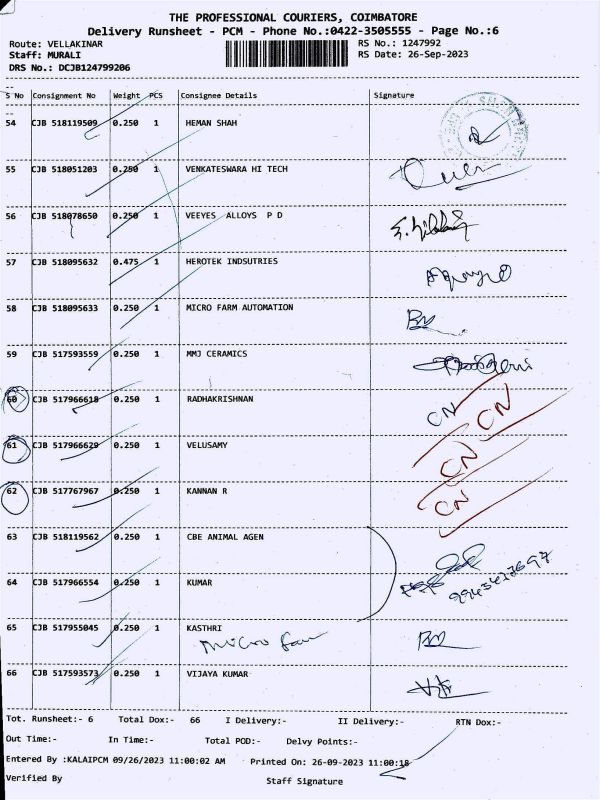 THE PROFESSIONAL COURIERS, COIMBATORE
Delivery Runsheet - PCM - Phone No.:0422-3505555 - Page No.:6
Route: VELLAKINAR RS No.: 1247992
Staff: MURALI RS Date: 26-Sep-2023
DRS No.: DCJB124799206
S No Consignment No Weight PCS Consignee Details Signature
54 CJB 518119509 0.250 1 HEMAN SHAH
55 CJB 518051203 0.250 1 VENKATESWARA HI TECH
56 CJB 518078650 0.250 1 VEEYES ALLOYS P D
57 CJB 518095632 0.475 1 HEROTEK INDSUTRIES
58 CJB 518095633 0.250 1 MICRO FARM AUTOMATION
59 CJB 517593559 0.250 1 MMJ CERAMICS
60 CJB 517966618 0.250 1 RADHAKRISHNAN CN CN
61 CJB 517966629 0.250 1 VELUSAMY CN
62 CJB 517767967 0.250 1 KANNAN R CN
63 CJB 518119562 0.250 1 CBE ANIMAL AGEN
64 CJB 517966554 0.250 1 KUMAR
65 CJB 517955045 0.250 1 KASTHRI
Micro
66 CJB 517593573 0.250 1 VIJAYA KUMAR
Tot. Runsheet:- 6 Total Dox:- 66 I Delivery:- II Delivery:- RTN Dox:-
Out Time:- In Time:- Total POD:- Delvy Points:-
Entered By :KALAIPCM 09/26/2023 11:00:02 AM Printed On: 26-09-2023 11:00:18
Verified By Staff Signature